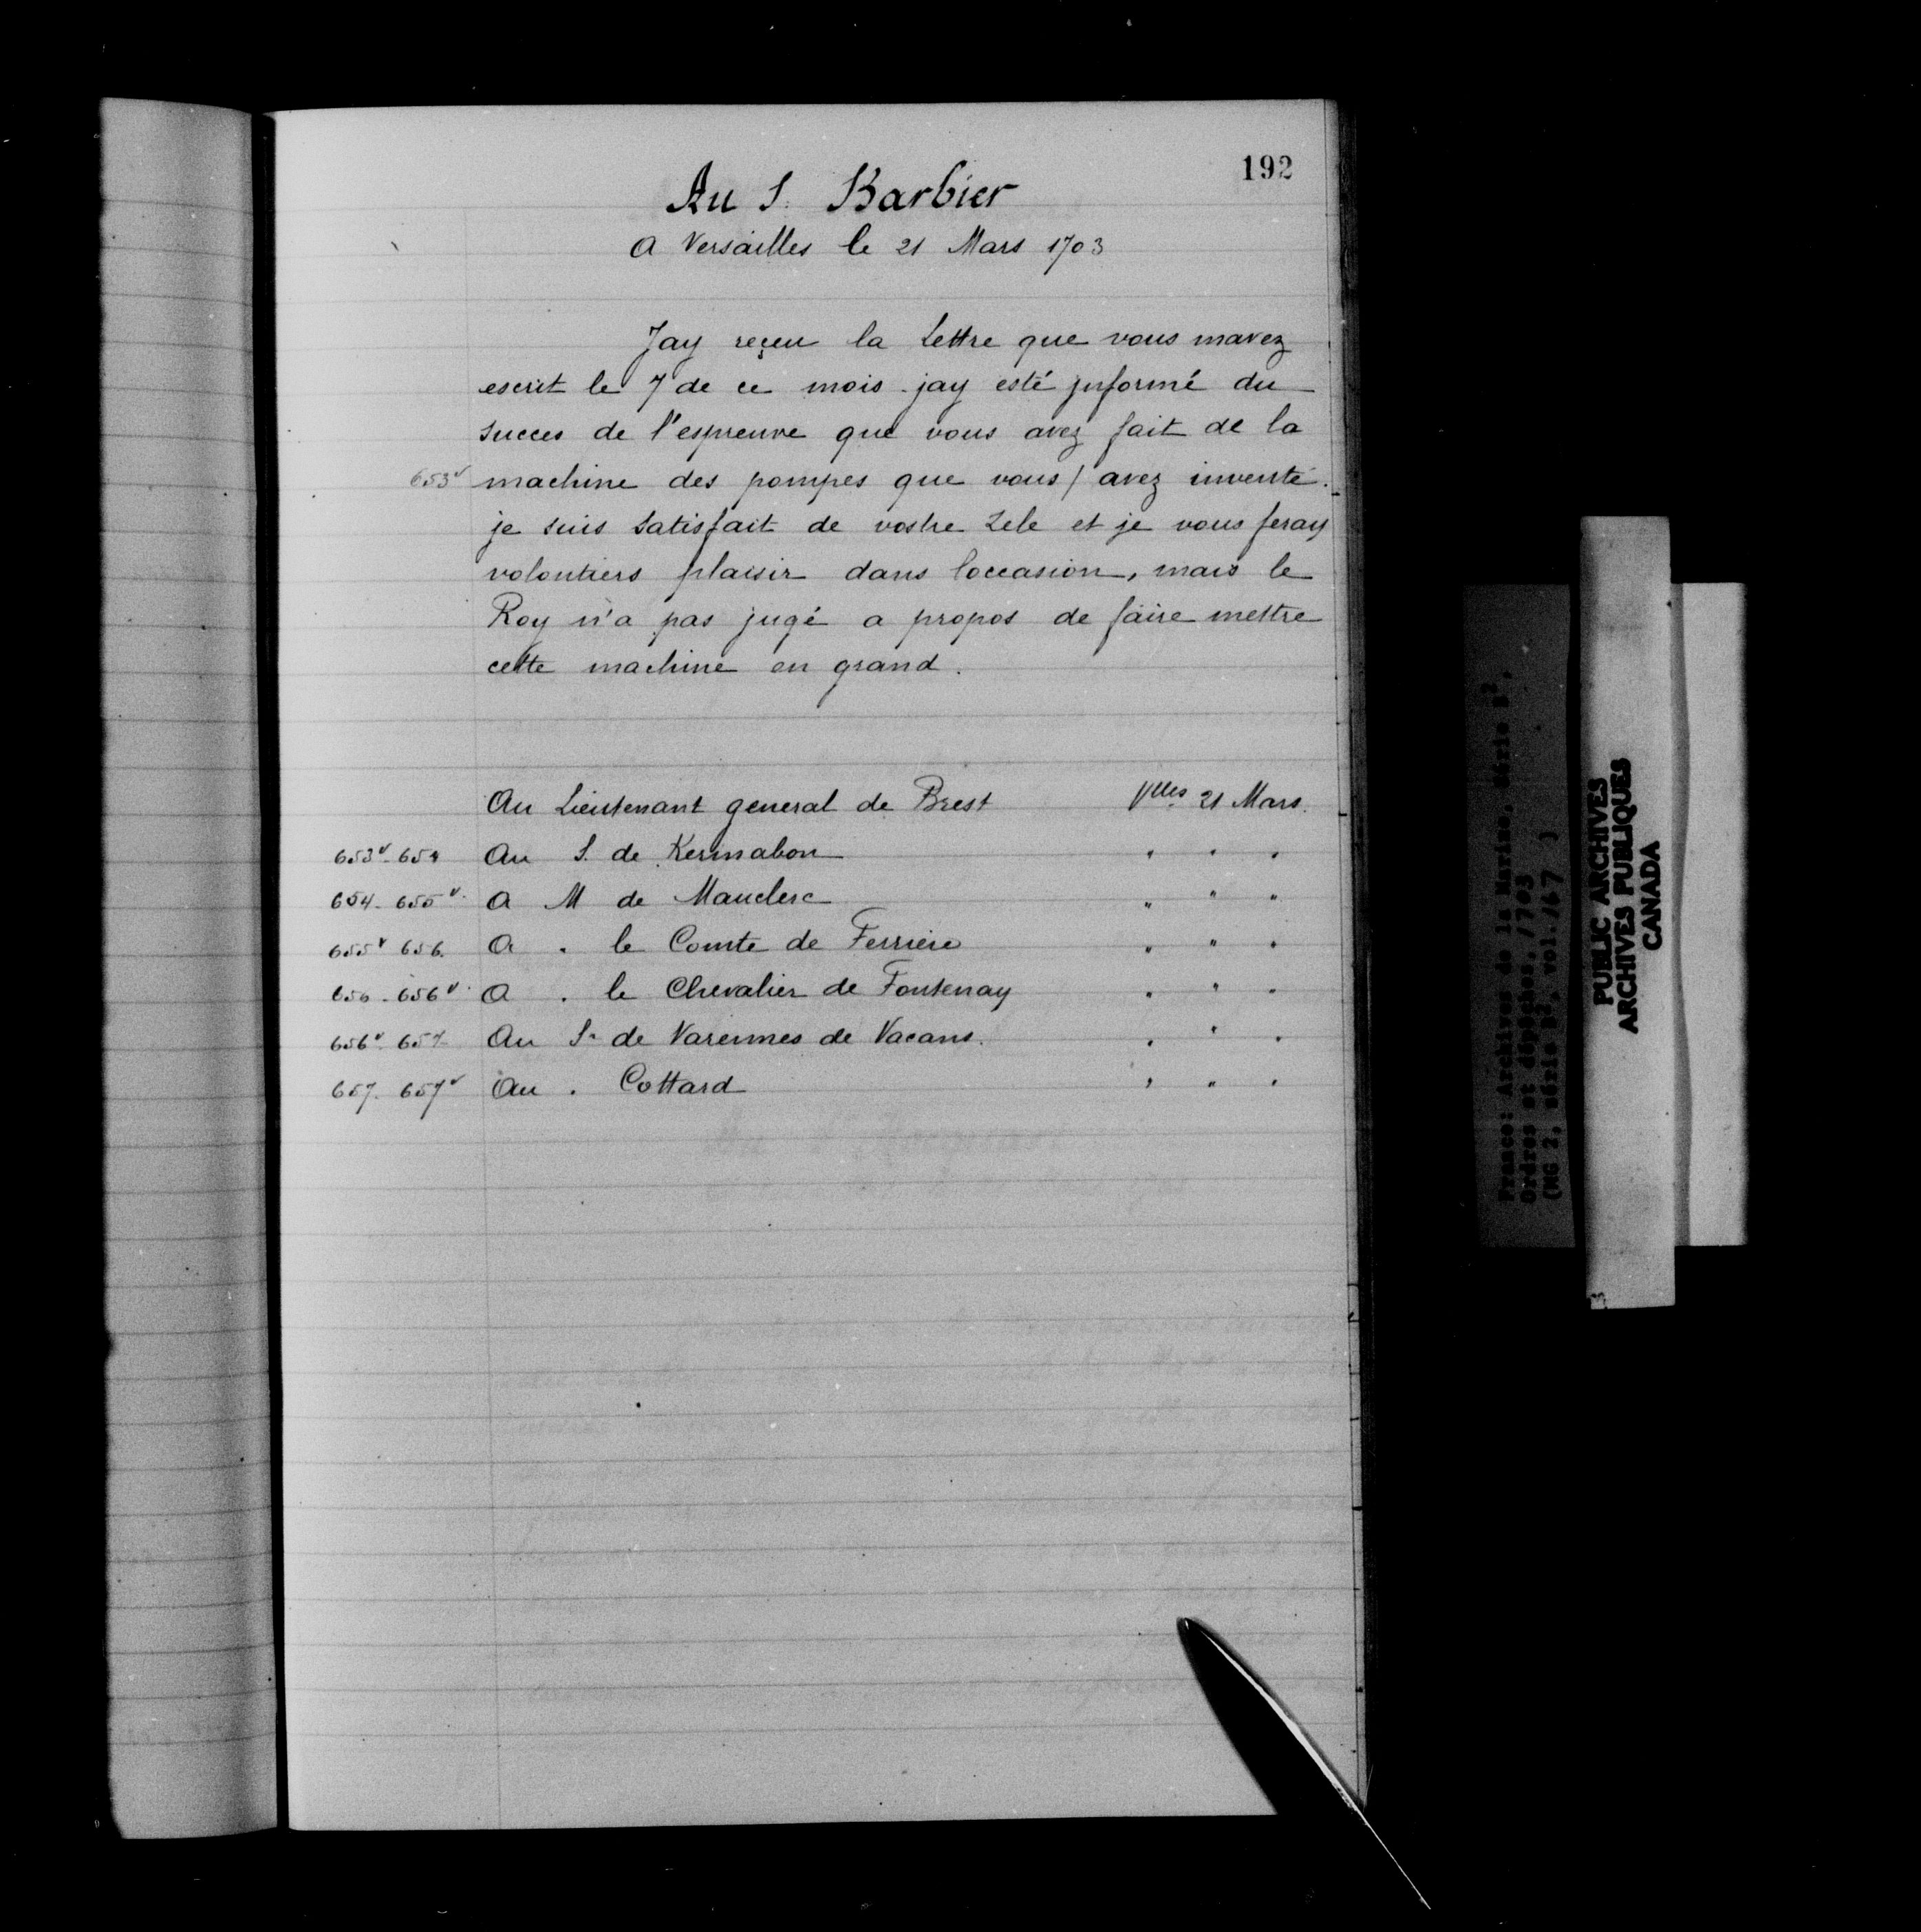 192
Au S. Barbier
A Versailles le 21 Mars 1703
Jay reçeu la Lettre que vous mavez
escrit le 7 de ce mois jay esté jnformé du
succes de l'espreuve que vous avez fait de la
653v machine des pompes que vous / avez inventé.
je suis satisfait de vostre Zele et je vous feray
volontiers plaisir dans loccasion, mais le
Roy n'a pas jugé a propos de faire mettre
cette machine en grand.
Au Lieutenant general de Brest Vlles 21 Mars.
653v-654 Au S. de Kermabon " " "
654-655v. A M de Mauclerc " " "
655v 656. A " le Comte de Ferriere " " "
656-656v. A " le Chevalier de Fontenay " " "
656v-657 Au Sr de Varennes de Vacans. " " "
657-657v Au " Cottard " " "
PUBLIC ARCHIVES
ARCHIVES PUBLIQUES
CANADA
France: Archives de la Marine, Série B2,
Ordres et dépêches, 1703
(MG 2, série B2, vol. 167 )